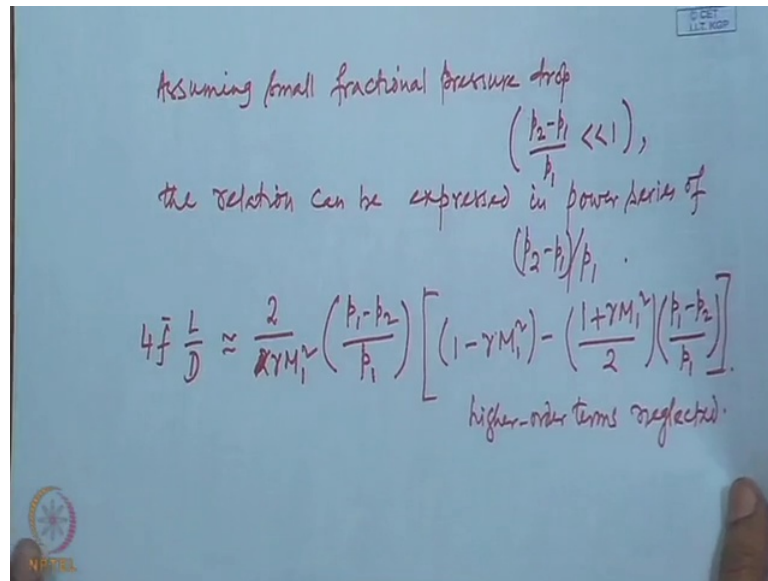 © CET
I.I.T. KGP
Assuming small fractional pressure drop
(p₂-p₁/p₁ <<1),
the relation can be expressed in power series of
(p₂-p₁)/p₁ .
4f̄ L/D ≈ 2/γM₁² (p₁-p₂/p₁) [(1-γM₁²) - (1+γM₁²/2)(p₁-p₂/p₁)].
higher-order terms neglected.
NPTEL